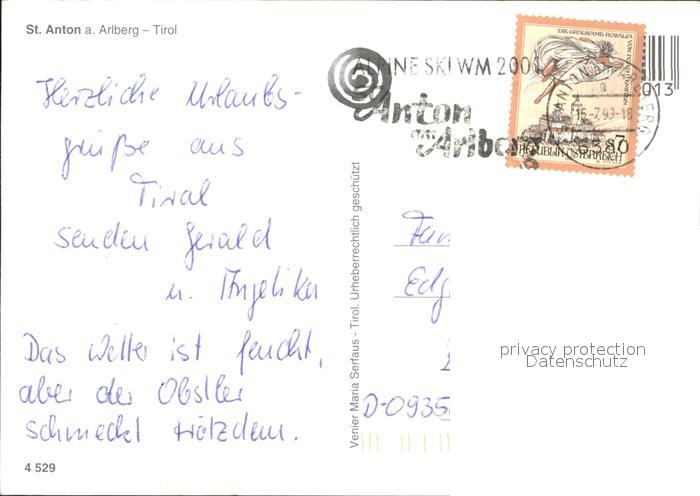 St. Anton a. Arlberg – Tirol
Herzliche Urlaubs-
grüße aus
Tirol
senden Gerald
u. Angelika
Das Wetter ist feucht,
aber der Obstler
schmeckt trotzdem.
4 529
Venier Maria Serfaus - Tirol. Urheberrechtlich geschützt
ALPINE SKI WM 2001
St. Anton
am Arlberg
DIE GRAUSAME ROSALIA
7
REPUBLIK ÖSTERREICH
15.-7.99-18
6580
2013
Fam
Edg
D-0935
privacy protection
Datenschutz